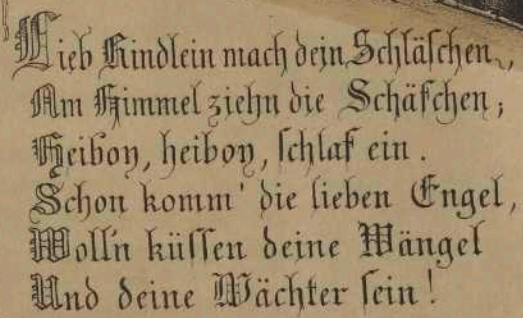 Lieb Kindlein mach dein Schläfchen,
Am Himmel ziehn die Schäfchen;
Heiboy, heiboy, schlaf ein.
Schon komm' die lieben Engel,
Woll'n küssen deine Wängel
Und deine Wächter sein!